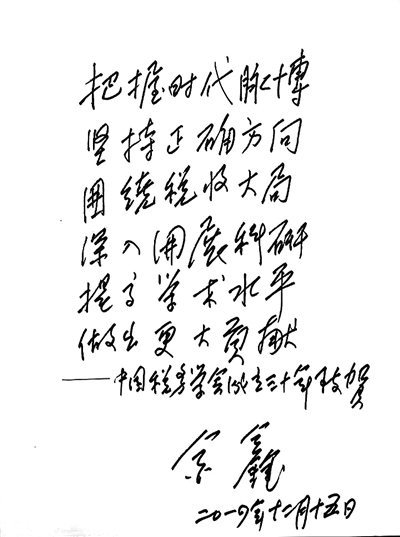 把握时代脉博
坚持正确方向
围绕税收大局
深入開展科研
提高学术水平
做出更大贡献
——中国税务学会成立三十年致贺
金鑫
二〇一四年十二月十五日